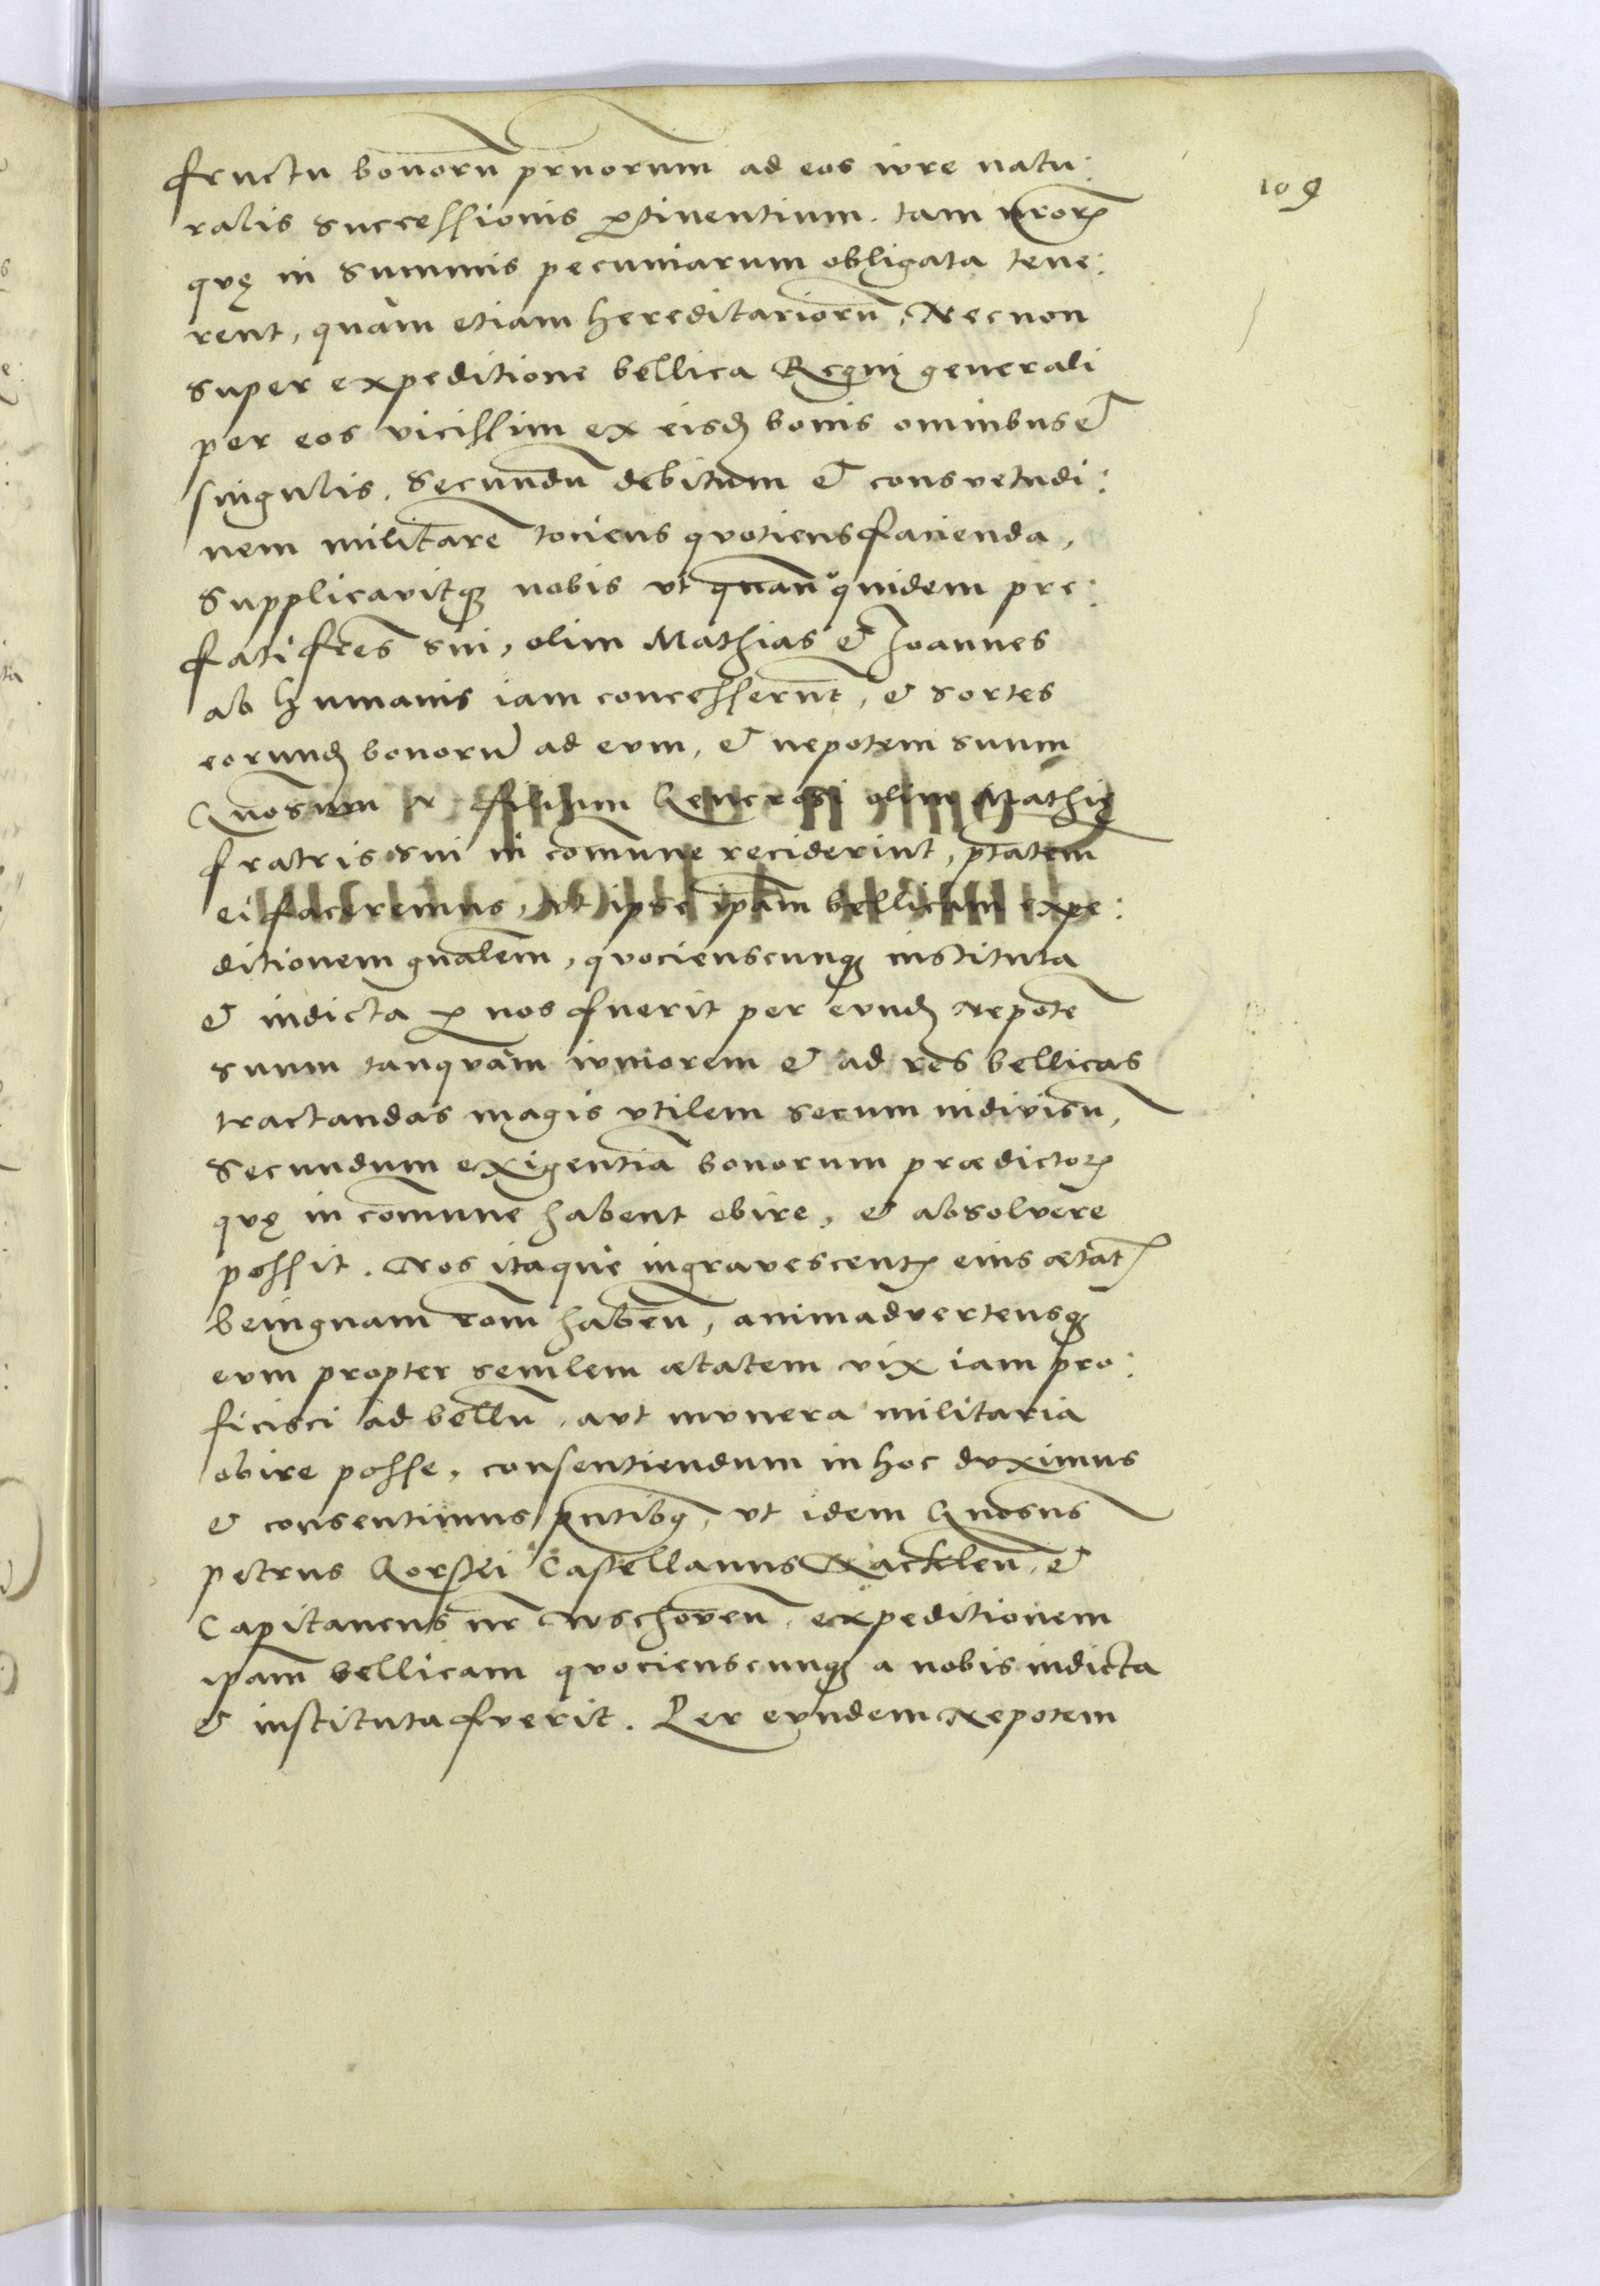 fructu bonorū prnorum ad eos iure natu:
ralis successionis ꝑtinentium. tam nroꝝ
quę in summis pecuniarum obligata tene:
rent, quàm etiam hereditariorū, Necnon
super expeditione bellica Regni generali
per eos vicissim ex eisđ bonis omnibus et
singulis, Secundū debitum et consvetudi:
nem militarē tociens quotiens facienda,
Supplicavitqꝫ nobis ut quan̄quidem pre:
fati frēs sui, olim Mathias et Joannes
ab humanis iam concesserūt, et sortes
eorunđ bonorū ad eum, et nepotem suum
Gnosum N. filium Generosi olim Mathię
fratris sui in com̄une reciderint, ptātem
ei faceremus, ut ipse ip̄am bellicam expe:
ditionem gn̄alem, quocienscunqꝫ instituta
et indicta ꝑ nos fuerit per eunđ Nepotē
suum tanquàm iuniorem et ad res bellicas
tractandas magis utilem secum indivisū,
Secundum exigentiā bonorum prædictoꝝ
quę in com̄une habent obire, et absolvere
possit. Nos itaque ingravescentꝭ eius ætatꝭ
benignam rōm habeñ, animadvertensqꝫ
eum propter senilem ætatem vix iam pro:
ficisci ad bellū, aut munera militaria
obire posse, consentiendum in hoc duximus
et consentimus pn̄tibꝫ, ut idem Gnosus
petrus Gorssei Castellanus Nacklen̄, et
Capitaneus nr̄ Wschoven̄, expeditionem
ip̄am bellicam quocienscunqꝫ a nobis indicta
et instituta fuerit. Per eundem Nepotem
109